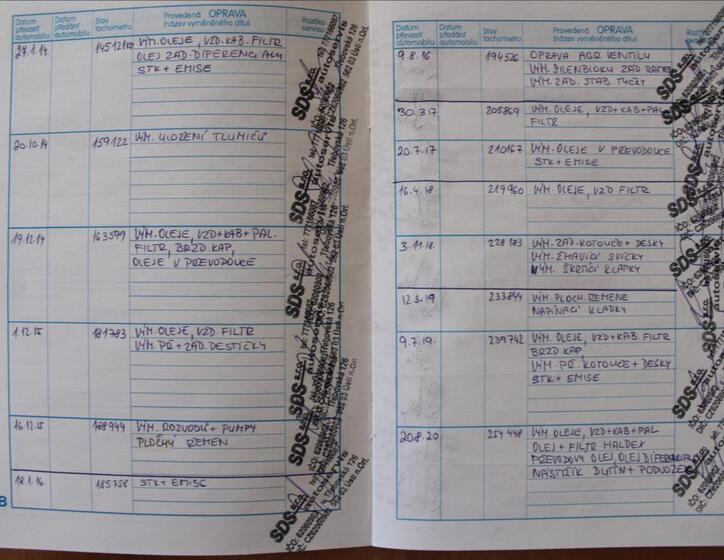 Datum převzetí automobilu
Datum předání automobilu
Stav tachometru
Provedená OPRAVA
(název vyměněného dílu)
Razítko servisu
27.1.14. 145121 VÝM. OLEJE, VZD. KAB. FILTR
OLEJ ZAD. DIFERENCIÁLU
STK + EMISE
20.10.14 159122 VÝM. ULOŽENÍ TLUMIČŮ
19.12.14 163599 VÝM. OLEJE, VZD+KAB+PAL.
FILTR, BRZD KAP,
OLEJE V PŘEVODOVCE
1.12.15 181783 VÝM. OLEJE, VZD. FILTR
VÝM. PŘ + ZAD. DESTIČKY
16.12.15 VÝM. ROZVODŮ + PUMPY
PLOCHÝ ŘEMEN
18.1.16. 185758 STK + EMISE
SDS s.r.o.
autoservis
Třebovská 126
562 03 Ústí n.Orl.
B
Datum převzetí automobilu
Datum předání automobilu
Stav tachometru
Provedená OPRAVA
(název vyměněného dílu)
9.8.16 194526 OPRAVA AGR VENTILU
VÝM. SILENBLOKU ZAD RAMEN
VÝM. ZAD. STAB. TYČKY
30.3.17 205869 VÝM. OLEJE, VZD+KAB+PAL
FILTR
20.7.17 210167 VÝM. OLEJE V PŘEVODOVCE
STK + EMISE
16.4.18 219960 VÝM. OLEJE, VZD FILTR
3.11.18. 228183 VÝM. ZAD. KOTOUČE + DESKY
VÝM. ŽHAVÍCÍ SVÍČKY
VÝM. ŠKRTÍCÍ KLAPKY
12.3.19 233844 VÝM. PLOCH. ŘEMENE
NAPÍNACÍ KLADKY
9.7.19. 239742 VÝM. OLEJE, VZD+KAB. FILTR
BRZD KAP,
VÝM. PŘ. KOTOUČE + DESKY
STK + EMISE
20.8.20 254448 VÝM. OLEJE, VZD+KAB+PAL
OLEJ + FILTR HALDEX
PŘEVODOVÝ OLEJ, OLEJ DIFERENCIÁL
NÁSTŘIK DUTIN + PODVOZEK